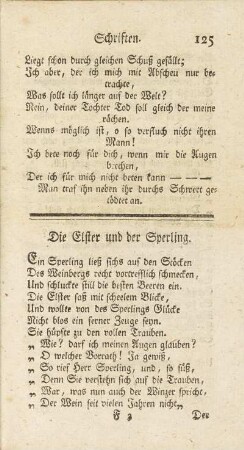 Schriften. 125
Liegt schon durch gleichen Schuß gefällt;
Ich aber, der ich mich mit Abscheu nur be-
trachte,
Was sollt ich länger auf der Welt?
Nein, deiner Tochter Tod soll gleich der meine
rächen.
Wenns möglich ist, o so verfluch nicht ihren
Mann!
Ich bete noch für dich, wenn mir die Augen
brechen,
Der ich für mich nicht beten kann — — —
Man traf ihn neben ihr durchs Schwert ge-
tödtet an.
Die Elster und der Sperling.
Ein Sperling ließ sichs auf den Stöcken
Des Weinbergs recht vortrefflich schmecken,
Und schluckte still die besten Beeren ein.
Die Elster saß mit scheelem Blicke,
Und wollte von des Sperlings Glücke
Nicht blos ein ferner Zeuge seyn.
Sie hüpfte zu den vollen Trauben.
„ Wie? darf ich meinen Augen glauben?
„ O welcher Vorrath! Ja gewiß,
„ So reif Herr Sperling, und, so süß,
„ Denn Sie verstehn sich auf die Trauben,
„ War, was nun auch der Winzer spricht,
„ Der Wein seit vielen Jahren nicht„
F 3 Der